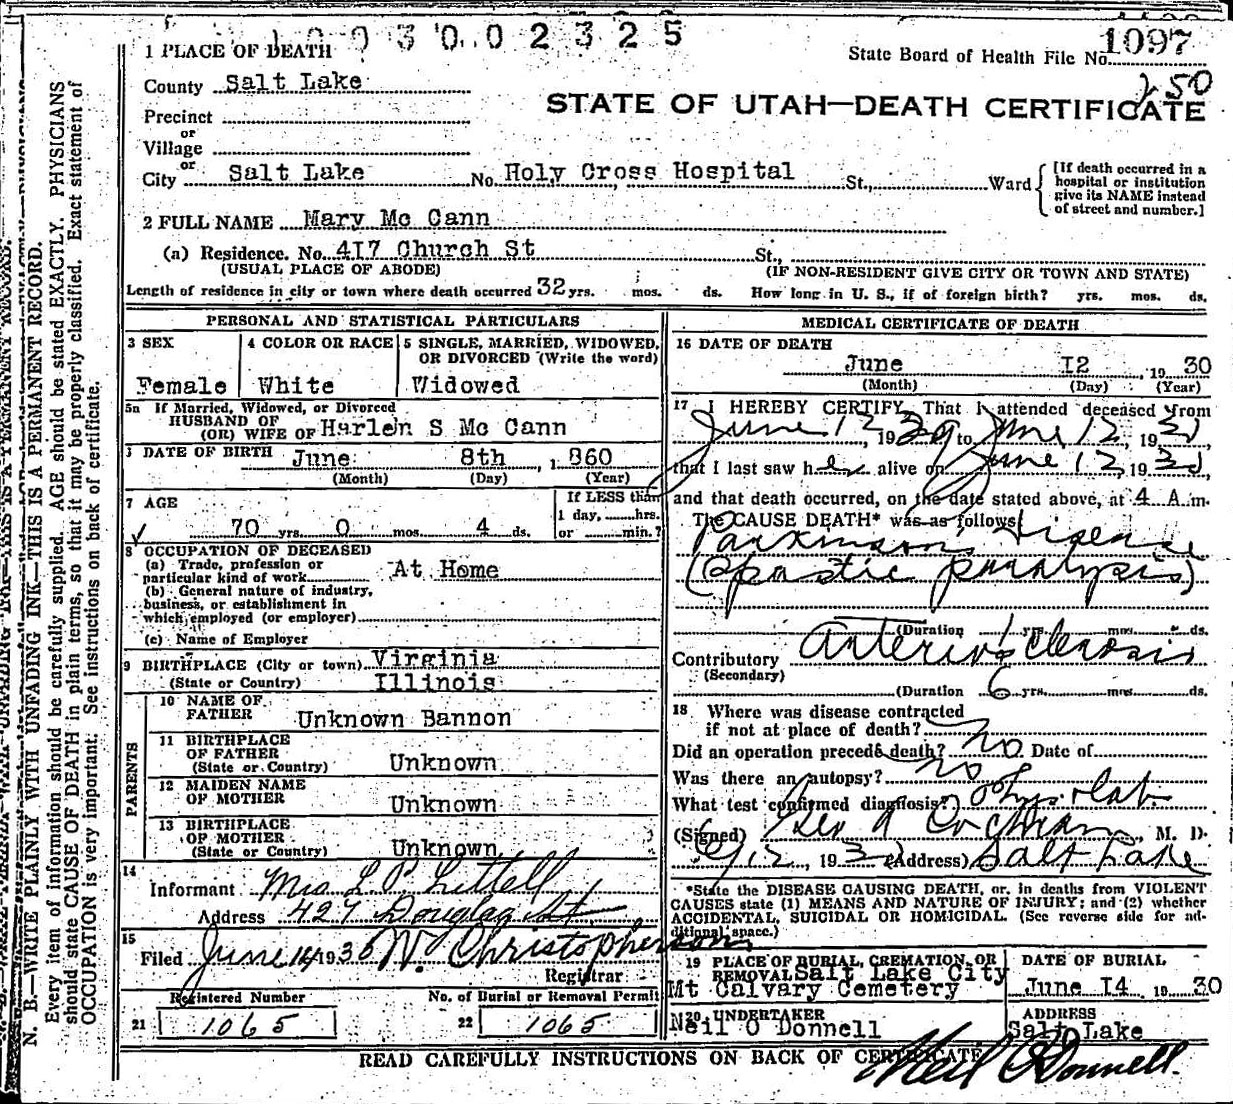 1 0 0 3 0 0 2 3 2 5
1 PLACE OF DEATH
State Board of Health File No. 1097
County Salt Lake
250
STATE OF UTAH—DEATH CERTIFICATE
Precinct
or
Village
or
City Salt Lake No. Holy Cross Hospital St., Ward
[If death occurred in a hospital or institution give its NAME instead of street and number.]
2 FULL NAME Mary Mc Cann
(a) Residence. No. 417 Church St St.,
(USUAL PLACE OF ABODE) (IF NON-RESIDENT GIVE CITY OR TOWN AND STATE)
Length of residence in city or town where death occurred 32 yrs. mos. ds. How long in U. S., if of foreign birth? yrs. mos. ds.
PERSONAL AND STATISTICAL PARTICULARS
3 SEX
Female
4 COLOR OR RACE
White
5 SINGLE, MARRIED, WIDOWED, OR DIVORCED (Write the word)
Widowed
5a If Married, Widowed, or Divorced
HUSBAND OF
(OR) WIFE OF Harlen S Mc Cann
DATE OF BIRTH June 8th, 1860
(Month) (Day) (Year)
7 AGE
70 yrs. 0 mos. 4 ds.
If LESS than
1 day, hrs.
or min.?
8 OCCUPATION OF DECEASED
(a) Trade, profession or
particular kind of work At Home
(b) General nature of industry,
business, or establishment in
which employed (or employer)
(c) Name of Employer
9 BIRTHPLACE (City or town) Virginia
(State or Country) Illinois
PARENTS
10 NAME OF
FATHER Unknown Bannon
11 BIRTHPLACE
OF FATHER
(State or Country) Unknown
12 MAIDEN NAME
OF MOTHER Unknown
13 BIRTHPLACE
OF MOTHER
(State or Country) Unknown
14
Informant Mrs L. P. Littell
Address 427 Douglas St.
15
Filed June 14 1930 W. Christopherson
Registrar
Registered Number
21 1065
No. of Burial or Removal Permit
22 1065
MEDICAL CERTIFICATE OF DEATH
16 DATE OF DEATH
June 12, 1930
(Month) (Day) (Year)
17 I HEREBY CERTIFY, That I attended deceased from
June 12, 1929 to June 12, 1930,
that I last saw her alive on June 12, 1930,
and that death occurred, on the date stated above, at 4 A.m.
The CAUSE DEATH* was as follows:
Parkinson's Disease
(Spastic paralysis)
(Duration 1 yrs. mos. ds.
Contributory Arteriosclerosis
(Secondary)
(Duration 6 yrs. mos. ds.
18 Where was disease contracted
if not at place of death?
Did an operation precede death? No Date of
Was there an autopsy? No
What test confirmed diagnosis? Phys. + Lab.
(Signed) Geo A Cochran, M. D.
6/12, 1930 (Address) Salt Lake
*State the DISEASE CAUSING DEATH, or, in deaths from VIOLENT
CAUSES state (1) MEANS AND NATURE OF INJURY; and (2) whether
ACCIDENTAL, SUICIDAL OR HOMICIDAL. (See reverse side for ad-
ditional space.)
19 PLACE OF BURIAL, CREMATION, OR
REMOVAL Salt Lake City
Mt Calvary Cemetery
DATE OF BURIAL
June 14, 1930
20 UNDERTAKER
Neil O Donnell
ADDRESS
Salt Lake
READ CAREFULLY INSTRUCTIONS ON BACK OF CERTIFICATE
Neil O'Donnell.
N. B.—WRITE PLAINLY WITH UNFADING INK—THIS IS A PERMANENT RECORD.
Every item of information should be carefully supplied. AGE should be stated EXACTLY. PHYSICIANS
should state CAUSE OF DEATH in plain terms, so that it may be properly classified. Exact statement of
OCCUPATION is very important. See instructions on back of certificate.